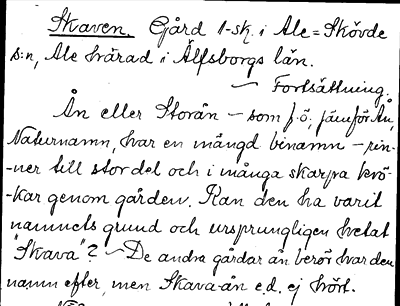 Skaven. Gård 1-sk. i Ale=Skövde
s:n, Ale härad i Älfsborgs län.
— Fortsättning.
Ån eller Storån – som f.ö., jämför Ån,
Naturnamn, har en mängd binamn – rin-
-ner till stor del och i många skarpa krö-
-kar genom gården. Kan den ha varit
namnets grund och ursprungligen hetat
"Skava"? — De andra gårdar ån berör har den
namn efter, men Skava-ån e.d. ej hört.